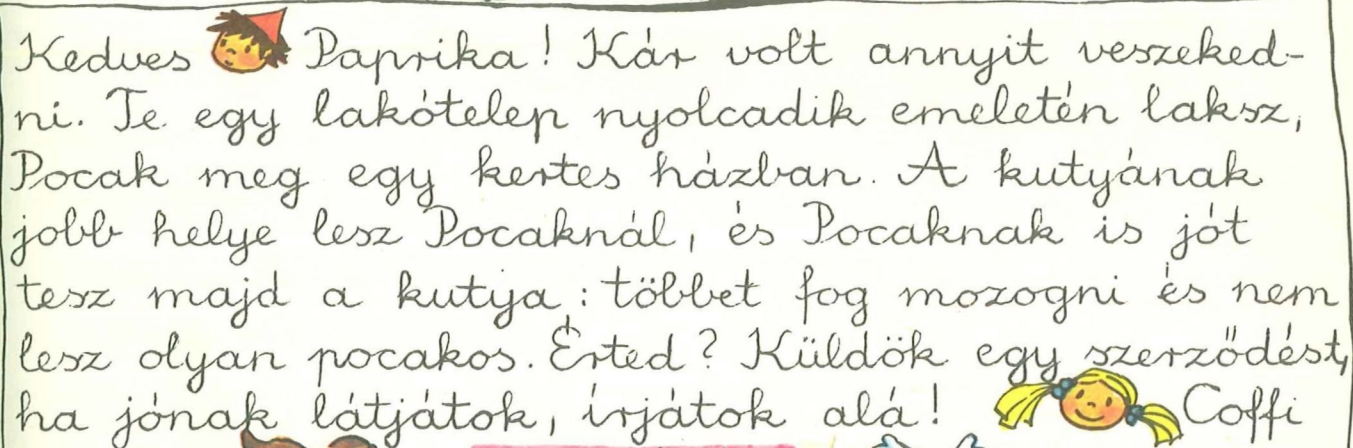 Kedves Paprika! Kár volt annyit veszeked-
ni. Te egy lakótelep nyolcadik emeletén laksz,
Pocak meg egy kertes házban. A kutyának
jobb helye lesz Pocaknál, és Pocaknak is jót
tesz majd a kutya: többet fog mozogni és nem
lesz olyan pocakos. Érted? Küldök egy szerződést,
ha jónak látjátok, írjátok alá! Coffi